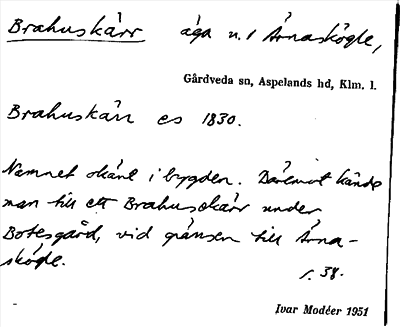 Brahuskärr äga n. 1 Årnaskögle,
Gårdveda sn, Aspelands hd, Klm. l.
Brahuskärr es 1830.
Namnet okänt i bygden. Däremot kände
man till ett Brahusokärr under
Botesgård, vid gränsen till Årna-
skögle.
s. 38.
Ivar Modéer 1951